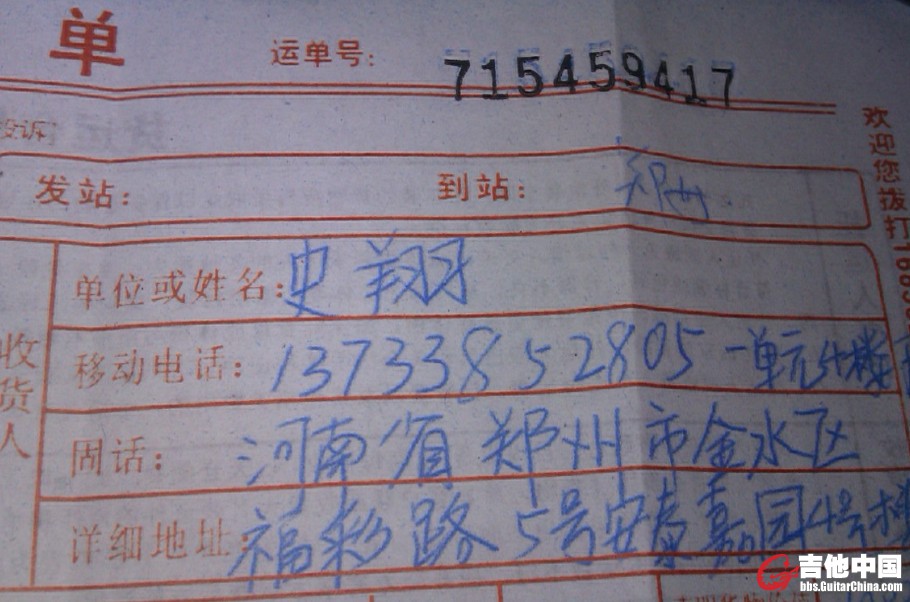 单 运单号: 715459417
投诉:
发站: 到站: 郑州
欢迎您拨打
收货人
单位或姓名: 史翔
移动电话: 13733852805 一单元4楼
固话: 河南省郑州市金水区
详细地址: 福彩路5号安泰嘉园4号楼
吉他中国
bbs.GuitarChina.com